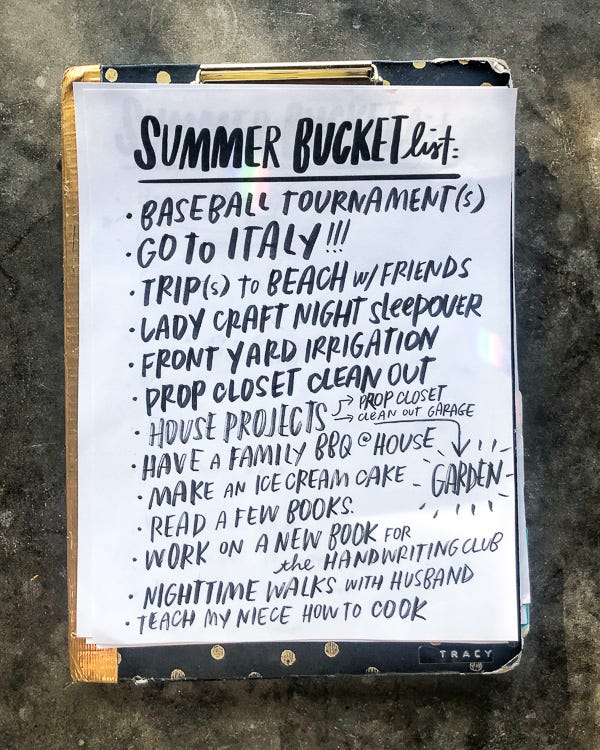 SUMMER BUCKET list:
• BASEBALL TOURNAMENT(s)
• GO to ITALY!!!
• TRIP(s) to BEACH w/ FRIENDS
• LADY CRAFT NIGHT sleepover
• FRONT YARD IRRIGATION
• PROP CLOSET CLEAN OUT
• HOUSE PROJECTS → PROP CLOSET
→ CLEAN OUT GARAGE
• HAVE A FAMILY BBQ @ HOUSE
• MAKE AN ICE CREAM CAKE
GARDEN
• READ A FEW BOOKS.
• WORK ON A NEW BOOK FOR
the HANDWRITING CLUB
• NIGHTTIME WALKS WITH HUSBAND
• TEACH MY NIECE HOW TO COOK
TRACY